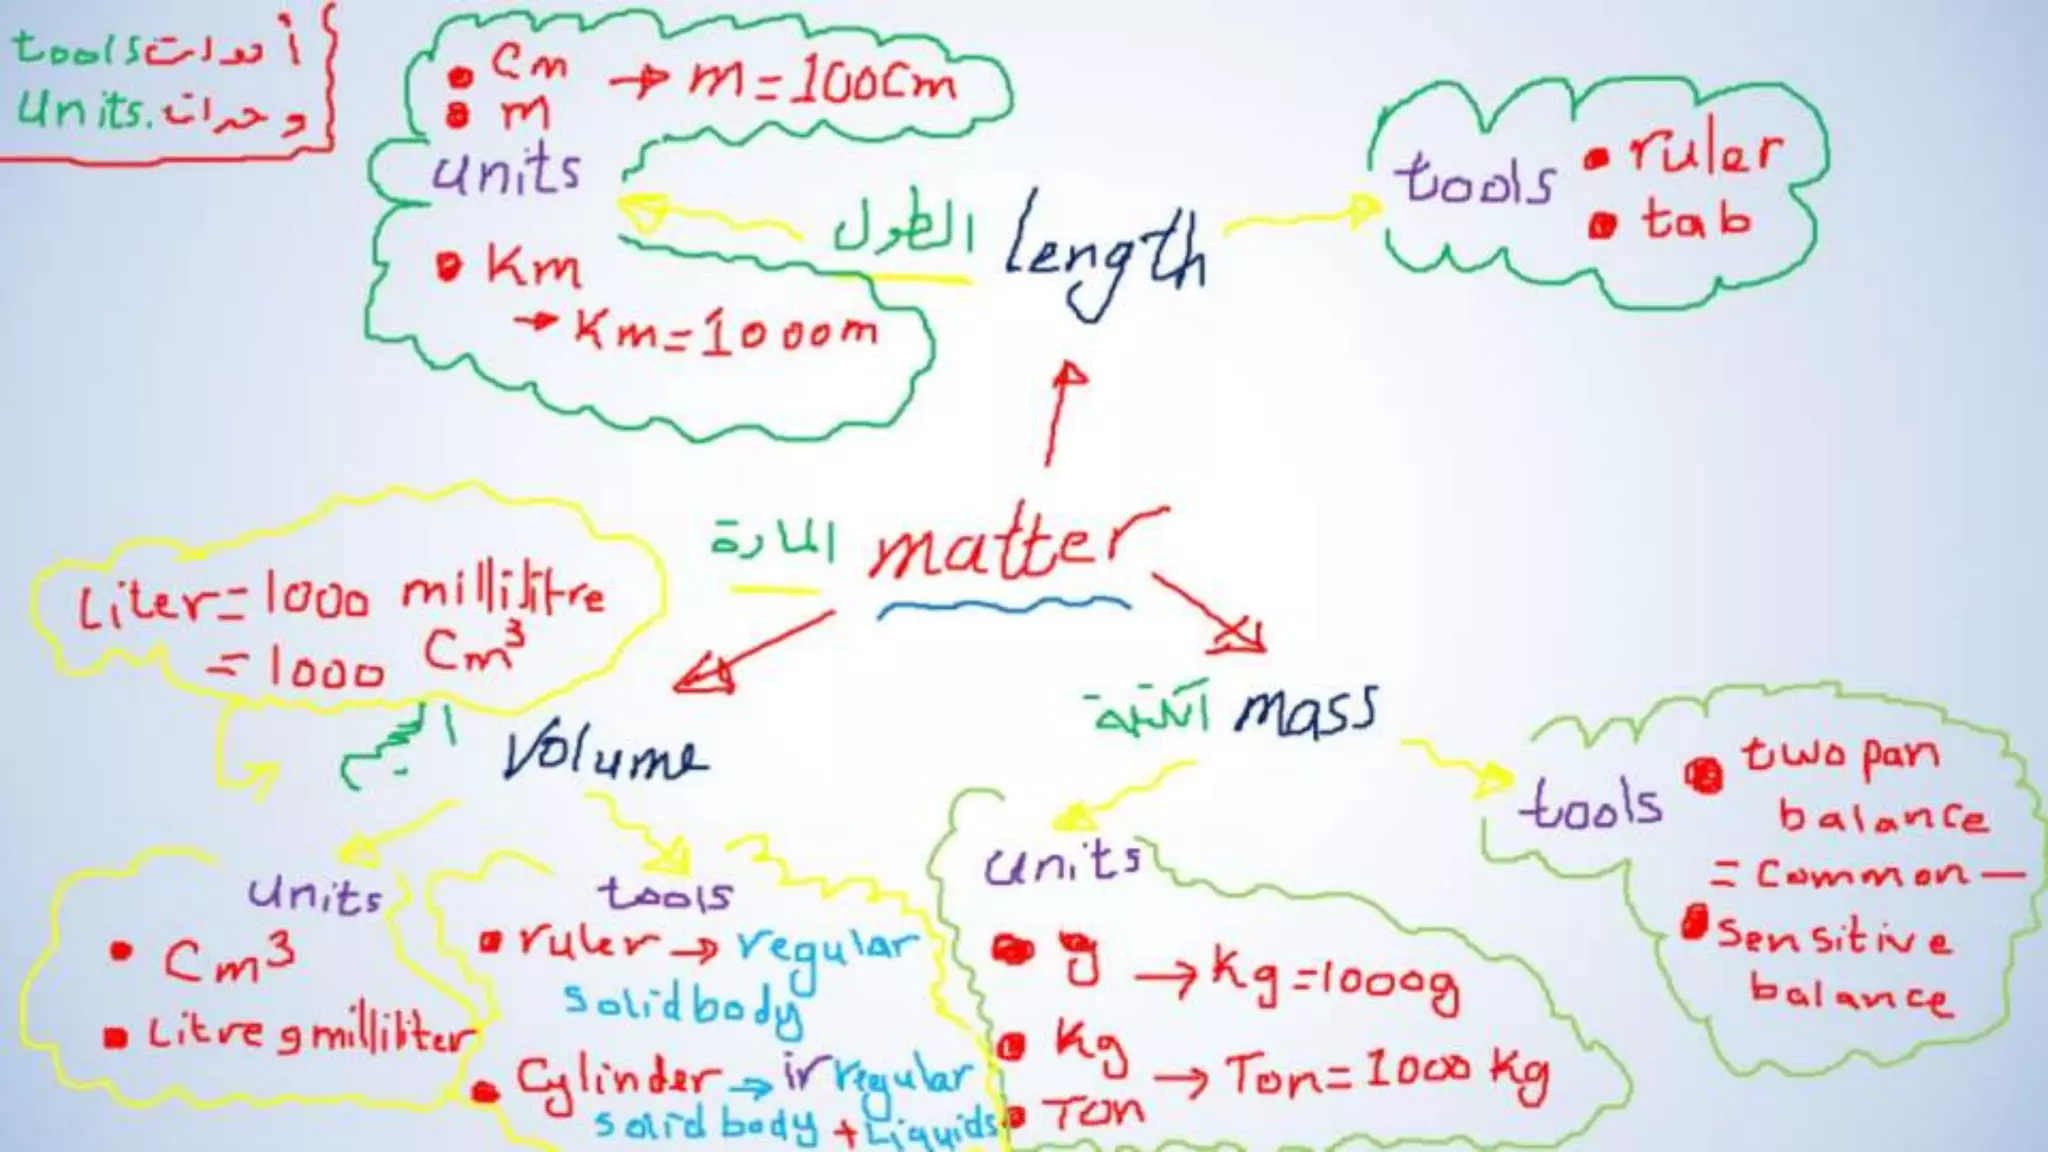 tools أدوات
Units. وحدات
• Cm → m = 100Cm
• m
units
• Km
→ Km = 1000m
الطول length
tools
• ruler
• tab
المادة matter
Liter = 1000 millilitre
= 1000 Cm³
Volume
الكتلة mass
Units
• Cm³
• Litre و milliliter
tools
• ruler → regular
solid body
• Cylinder → irregular
solid body + Liquids
Units
• g → Kg = 1000g
• Kg
• Ton → Ton = 1000 Kg
tools
• two pan
balance
= Common —
• Sensitive
balance